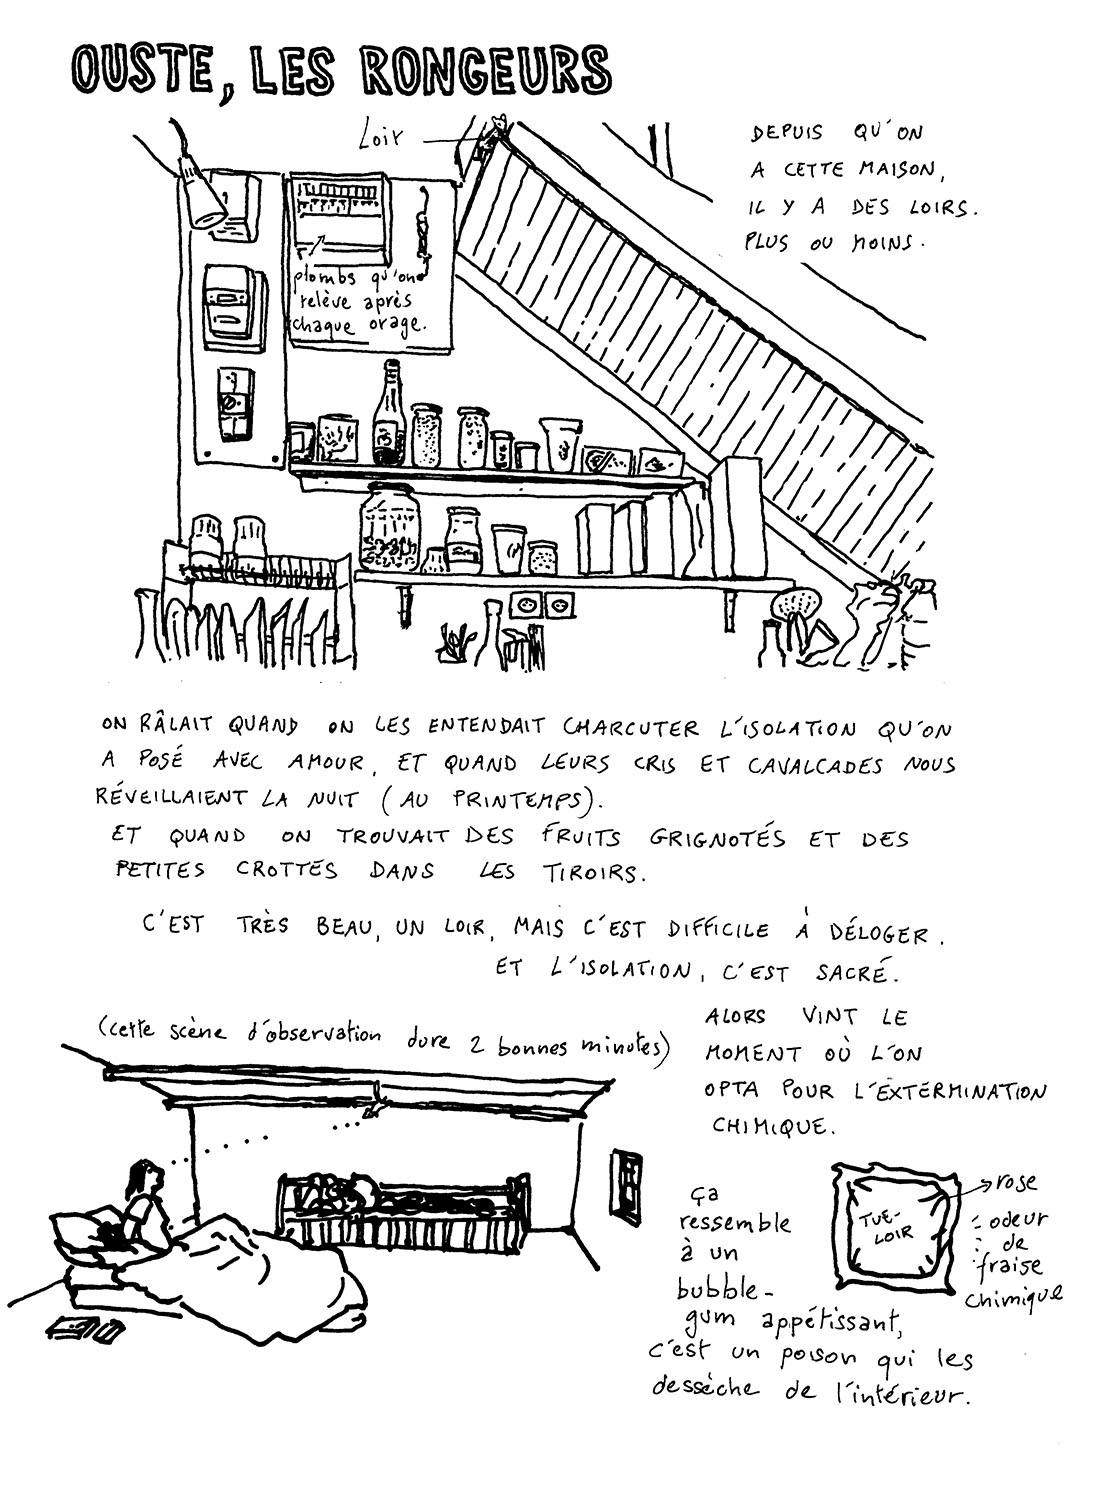 OUSTE, LES RONGEURS
Loir
DEPUIS QU'ON
A CETTE MAISON,
IL Y A DES LOIRS.
PLUS OU MOINS.
plombs qu'on
relève après
chaque orage.
ON RÂLAIT QUAND ON LES ENTENDAIT CHARCUTER L'ISOLATION QU'ON
A POSÉ AVEC AMOUR, ET QUAND LEURS CRIS ET CAVALCADES NOUS
RÉVEILLAIENT LA NUIT (AU PRINTEMPS).
ET QUAND ON TROUVAIT DES FRUITS GRIGNOTÉS ET DES
PETITES CROTTES DANS LES TIROIRS.
C'EST TRÈS BEAU, UN LOIR, MAIS C'EST DIFFICILE À DÉLOGER.
ET L'ISOLATION, C'EST SACRÉ.
(cette scène d'observation dure 2 bonnes minutes)
ALORS VINT LE
MOMENT OÙ L'ON
OPTA POUR L'EXTERMINATION
CHIMIQUE.
ça
ressemble
à un
bubble-
gum appétissant,
c'est un poison qui les
dessèche de l'intérieur.
TUE-
LOIR
rose
odeur
de
fraise
chimique